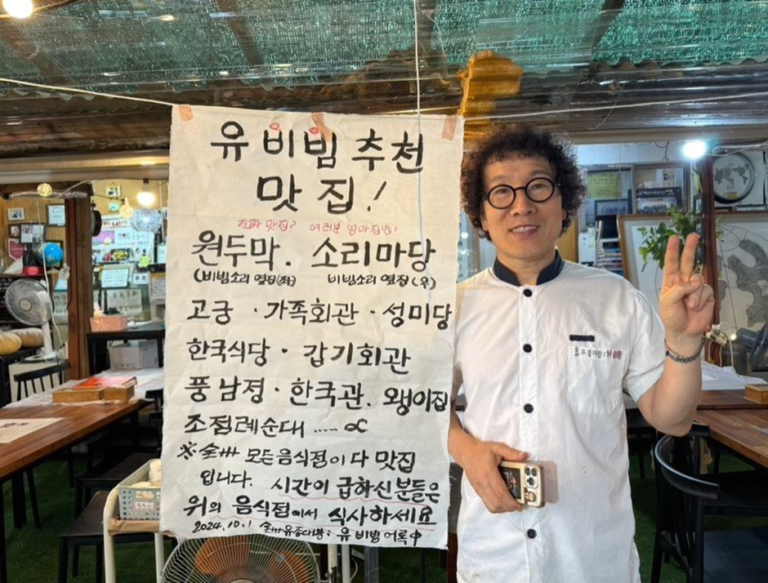 유비빔 추천
맛집!
진짜 맛집? 여러분 엄마집밥!
원두막. 소리마당
(비빔소리 옆집(좌) 비빔소리 옆집(우)
고궁 · 가족회관 · 성미당
한국식당 · 갑기회관
풍남정 · 한국관. 왱이집
조점례순대 ..... ∝
※ 全州 모든음식점이 다 맛집
입니다. 시간이 급하신분들은
위의 음식점에서 식사하세요
2024.10.1 全州 유비빔 어록中